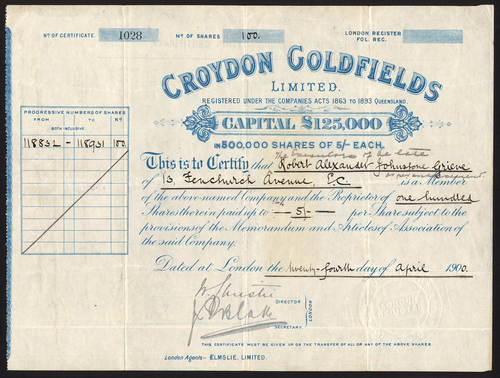 No. OF CERTIFICATE. 1028 No. OF SHARES 100. LONDON REGISTER FOL. REC.
CROYDON GOLDFIELDS
LIMITED.
REGISTERED UNDER THE COMPANIES ACTS 1863 TO 1893 QUEENSLAND.
CAPITAL $125,000
IN 500,000 SHARES OF 5/- EACH.
PROGRESSIVE NUMBERS OF SHARES
FROM TO No.
BOTH INCLUSIVE.
118832 - 118931 100
The Executors of the late
This is to Certify that Robert Alexander Johnstone Grieve
of 13, Fenchurch Avenue, E.C. is a Member
of the above-named Company and the Proprietor of one hundred
Shares therein paid up to 5/- per Share subject to the
provisions of the Memorandum and Articles of Association of
the said Company.
Dated at London the twenty-fourth day of April 1900.
DIRECTOR
LONDON
SECRETARY.
THIS CERTIFICATE MUST BE GIVEN UP ON THE TRANSFER OF ALL OR ANY OF THE ABOVE SHARES.
London Agents:- ELMSLIE, LIMITED.